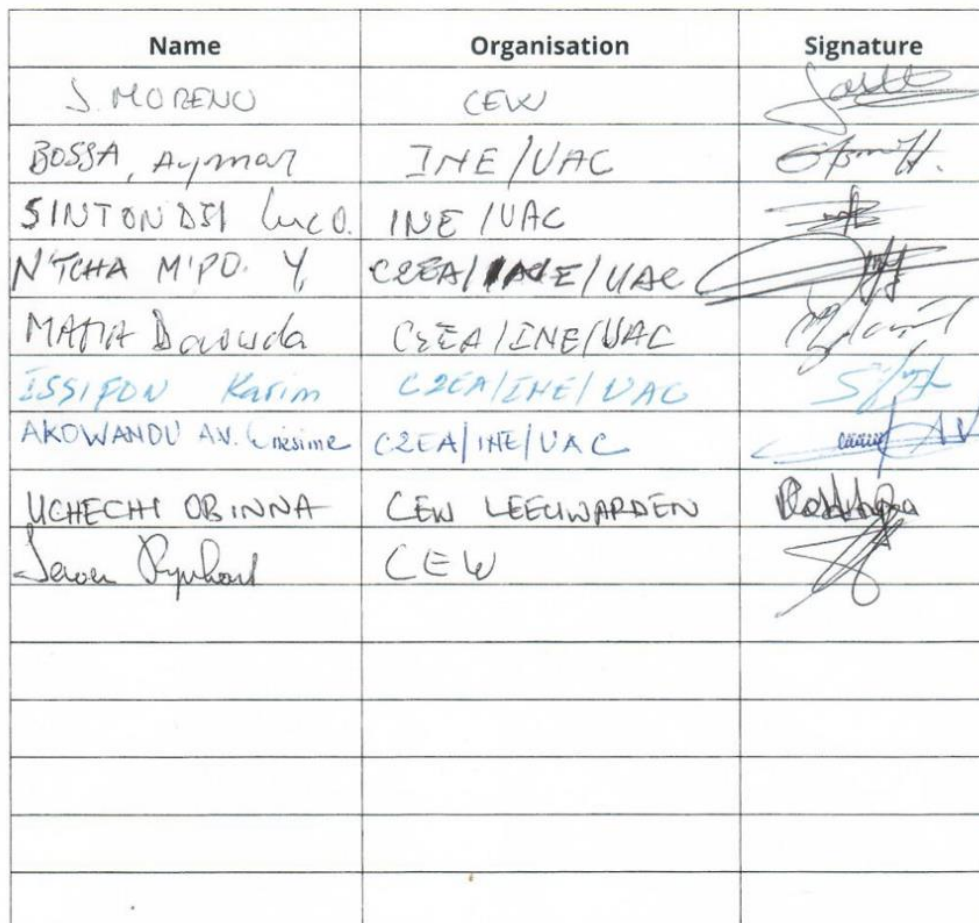 Name Organisation Signature
J. MORENO CEW
BOSSA, Aymar INE/UAC
SINTONDJI Luc O. INE/UAC
N'TCHA M'PO. Y. C2EA/INE/UAC
MAMA Daouda C2EA/INE/UAC
ISSIFOU Karim C2EA/INE/UAC
AKOWANOU AV. Onésime C2EA/INE/UAC
UCHECHI OBINNA CEW LEEUWARDEN
CEW